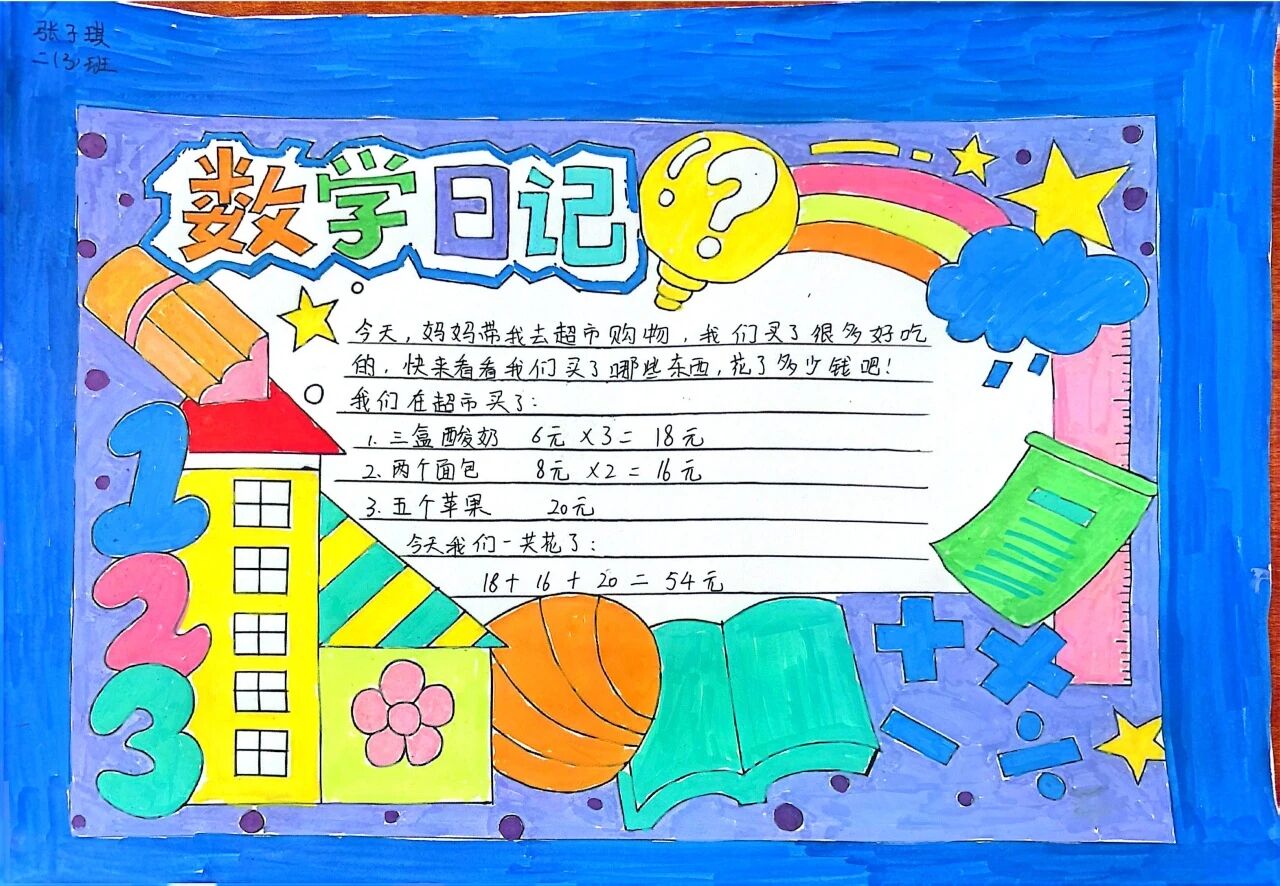 张子琪
二(3)班
数学日记
?
今天,妈妈带我去超市购物,我们买了很多好吃
的,快来看看我们买了哪些东西,花了多少钱吧!
我们在超市买了:
1. 三盒酸奶 6元 ×3= 18元
2. 两个面包 8元 ×2= 16元
3. 五个苹果 20元
今天我们一共花了:
18+ 16 + 20 = 54元
1
2
3
+ ×
- ÷